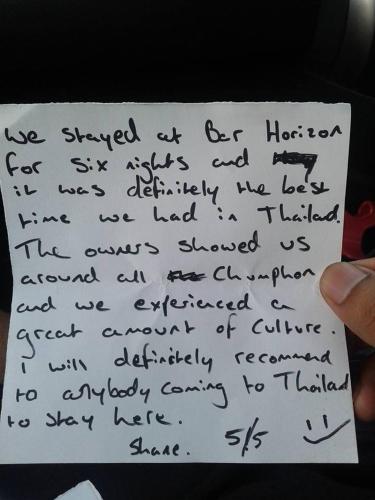 We stayed at Bar Horizon
for six nights and
it was definitely the best
time we had in Thailad.
The owners showed us
around all Chumphon
and we experienced a
great amount of Culture.
I will definitely recommend
to anybody coming to Thailad
to stay here.
Shane. 5/5